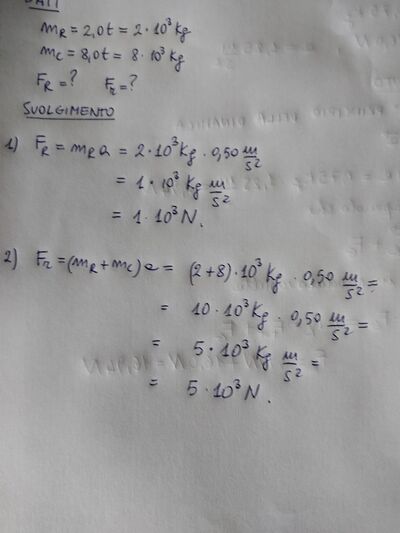 DATI
m_R = 2,0 t = 2 · 10³ kg
m_C = 8,0 t = 8 · 10³ kg
F_R = ? F_r = ?
SVOLGIMENTO
1) F_R = m_R a = 2 · 10³ kg · 0,50 m/s²
= 1 · 10³ kg m/s²
= 1 · 10³ N.
2) F_r = (m_R + m_C) a = (2+8) · 10³ kg · 0,50 m/s² =
= 10 · 10³ kg · 0,50 m/s² =
= 5 · 10³ kg m/s² =
= 5 · 10³ N.